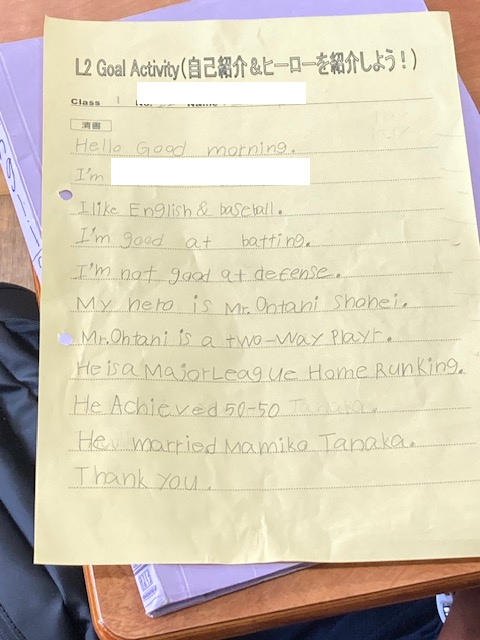 L2 Goal Activity(自己紹介&ヒーローを紹介しよう!)
Class 1 No. Name
清書
Hello Good morning.
I'm
I like English & baseball.
I'm good at batting.
I'm not good at defense.
My hero is Mr. Ohtani Shohei.
Mr. Ohtani is a two-way Playr.
He is a Major League Home Run king.
He Achieved 50-50 Tanaka.
He married Mamiko Tanaka.
Thank you.